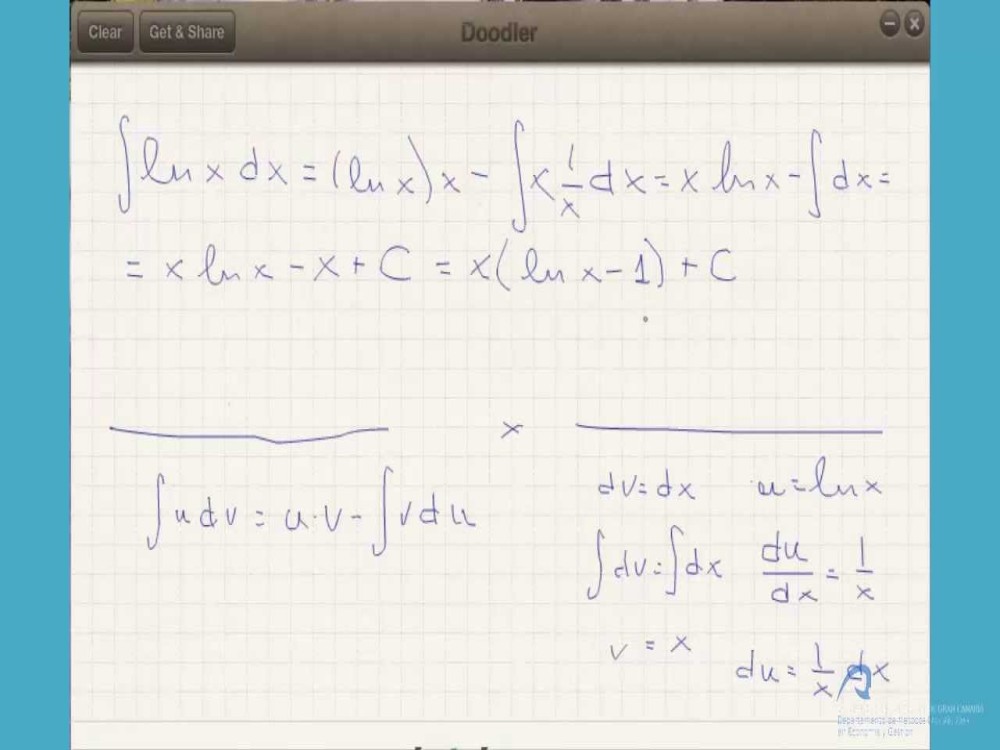 Clear Get & Share Doodler
∫ ln x dx = (ln x) x - ∫ x 1/x dx = x ln x - ∫ dx =
= x ln x - x + C = x (ln x - 1) + C
×
∫ u dv = u · v - ∫ v du
dv = dx u = ln x
∫ dv = ∫ dx du/dx = 1/x
v = x du = 1/x dx
en Economía y Gestión